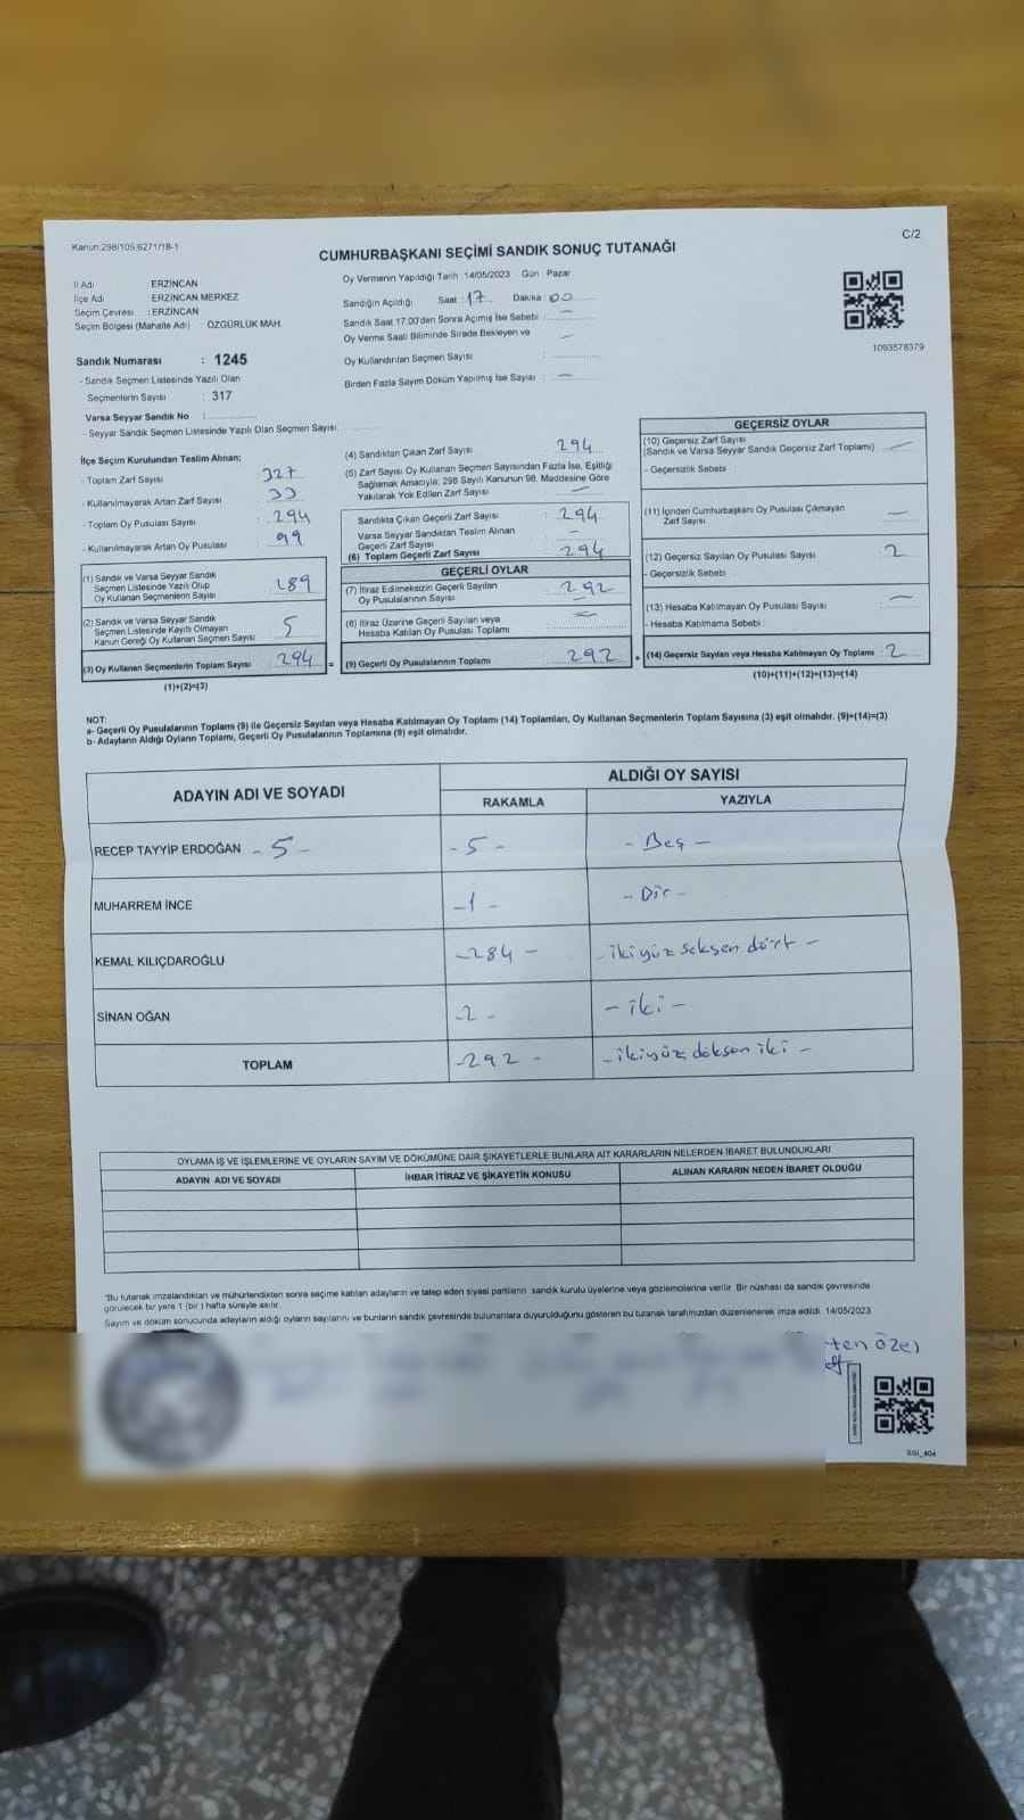 Kanun:298/105,6271/18-1
C/2
CUMHURBAŞKANI SEÇİMİ SANDIK SONUÇ TUTANAĞI
İl Adı : ERZİNCAN
İlçe Adı ERZİNCAN MERKEZ
Seçim Çevresi : ERZİNCAN
Seçim Bölgesi (Mahalle Adı) : ÖZGÜRLÜK MAH.
Sandık Numarası : 1245
- Sandık Seçmen Listesinde Yazılı Olan
Seçmenlerin Sayısı : 317
Varsa Seyyar Sandık No :
- Seyyar Sandık Seçmen Listesinde Yazılı Olan Seçmen Sayısı
Oy Vermenin Yapıldığı Tarih :14/05/2023 Gün : Pazar
Sandığın Açıldığı Saat : 17 Dakika : 00
Sandık Saat 17.00'den Sonra Açımış İse Sebebi : —
Oy Verme Saati Bitiminde Sırada Bekleyen ve —
Oy Kullandırılan Seçmen Sayısı :
Birden Fazla Sayım Döküm Yapılmış İse Sayısı : —
1093578379
İlçe Seçim Kurulundan Teslim Alınan;
- Toplam Zarf Sayısı : 327
- Kullanılmayarak Artan Zarf Sayısı : 33
- Toplam Oy Pusulası Sayısı : 294
- Kullanılmayarak Artan Oy Pusulası : 99
(1) Sandık ve Varsa Seyyar Sandık
Seçmen Listesinde Yazılı Olup
Oy Kullanan Seçmenlerin Sayısı : 289
(2) Sandık ve Varsa Seyyar Sandık
Seçmen Listesinde Kayıtlı Olmayan
Kanun Gereği Oy Kullanan Seçmen Sayısı : 5
(3) Oy Kullanan Seçmenlerin Toplam Sayısı : 294 =
(1)+(2)=(3)
(4) Sandıktan Çıkan Zarf Sayısı : 294
(5) Zarf Sayısı Oy Kullanan Seçmen Sayısından Fazla İse, Eşitliği
Sağlamak Amacıyla; 298 Sayılı Kanunun 98. Maddesine Göre
Yakılarak Yok Edilen Zarf Sayısı : —
Sandıkta Çıkan Geçerli Zarf Sayısı : 294
Varsa Seyyar Sandıktan Teslim Alınan
Geçerli Zarf Sayısı : —
(6) Toplam Geçerli Zarf Sayısı : 294
GEÇERLİ OYLAR
(7) İtiraz Edilmeksizin Geçerli Sayılan
Oy Pusulalarının Sayısı : 292
(8) İtiraz Üzerine Geçerli Sayılan veya
Hesaba Katılan Oy Pusulası Toplamı : —
(9) Geçerli Oy Pusulalarının Toplamı : 292 +
GEÇERSİZ OYLAR
(10) Geçersiz Zarf Sayısı
(Sandık ve Varsa Seyyar Sandık Geçersiz Zarf Toplamı) : —
- Geçersizlik Sebebi
(11) İçinden Cumhurbaşkanı Oy Pusulası Çıkmayan
Zarf Sayısı : —
(12) Geçersiz Sayılan Oy Pusulası Sayısı : 2
- Geçersizlik Sebebi
(13) Hesaba Katılmayan Oy Pusulası Sayısı : —
- Hesaba Katılmama Sebebi :
(14) Geçersiz Sayılan veya Hesaba Katılmayan Oy Toplamı : 2
(10)+(11)+(12)+(13)=(14)
NOT:
a- Geçerli Oy Pusulalarının Toplamı (9) ile Geçersiz Sayılan veya Hesaba Katılmayan Oy Toplamı (14) Toplamları, Oy Kullanan Seçmenlerin Toplam Sayısına (3) eşit olmalıdır. (9)+(14)=(3)
b- Adayların Aldığı Oyların Toplamı, Geçerli Oy Pusulalarının Toplamına (9) eşit olmalıdır.
ADAYIN ADI VE SOYADI
ALDIĞI OY SAYISI
RAKAMLA YAZIYLA
RECEP TAYYİP ERDOĞAN - 5 - - 5 - - Beş -
MUHARREM İNCE - 1 - - Bir -
KEMAL KILIÇDAROĞLU - 284 - - ikiyüz seksen dört -
SİNAN OĞAN - 2 - - iki -
TOPLAM - 292 - - ikiyüz doksan iki -
OYLAMA İŞ VE İŞLEMLERİNE VE OYLARIN SAYIM VE DÖKÜMÜNE DAİR ŞİKAYETLERLE BUNLARA AİT KARARLARIN NELERDEN İBARET BULUNDUKLARI
ADAYIN ADI VE SOYADI İHBAR İTİRAZ VE ŞİKAYETİN KONUSU ALINAN KARARIN NEDEN İBARET OLDUĞU
*Bu tutanak imzalandıktan ve mühürlendikten sonra seçime katılan adayların ve talep eden siyasi partilerin sandık kurulu üyelerine veya gözlemcilerine verilir. Bir nüshası da sandık çevresinde
görülecek bir yere 1 (bir) hafta süreyle asılır.
Sayım ve döküm sonucunda adayların aldığı oyların sayılarını ve bunların sandık çevresinde bulunanlara duyurulduğunu gösteren bu tutanak tarafımızdan düzenlenerek imza edildi. 14/05/2023
ten özel